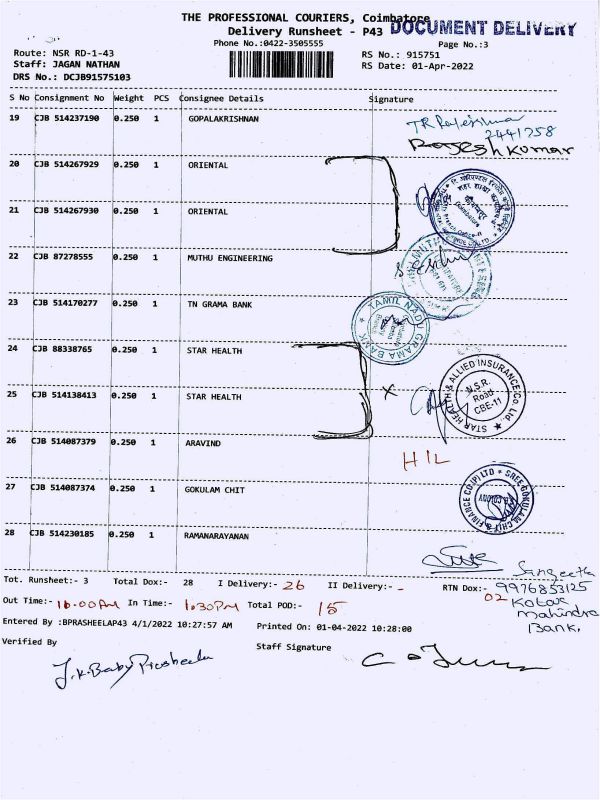 THE PROFESSIONAL COURIERS, Coimbatore
DOCUMENT DELIVERY
Delivery Runsheet - P43
Phone No.:0422-3505555
Page No.:3
Route: NSR RD-1-43
RS No.: 915751
Staff: JAGAN NATHAN
RS Date: 01-Apr-2022
DRS No.: DCJB91575103
S No Consignment No Weight PCS Consignee Details Signature
19 CJB 514237190 0.250 1 GOPALAKRISHNAN
2441758
Rajesh kumar
20 CJB 514267929 0.250 1 ORIENTAL
21 CJB 514267930 0.250 1 ORIENTAL
22 CJB 87278555 0.250 1 MUTHU ENGINEERING
23 CJB 514170277 0.250 1 TN GRAMA BANK
TAMIL NADU GRAMA BANK
24 CJB 88338765 0.250 1 STAR HEALTH
25 CJB 514138413 0.250 1 STAR HEALTH
STAR HEALTH & ALLIED INSURANCE Co. Ltd.
N.S.R.
Road
CBE-11
26 CJB 514087379 0.250 1 ARAVIND
27 CJB 514087374 0.250 1 GOKULAM CHIT
SREE GOKULAM CHIT & FINANCE CO (P) LTD
28 CJB 514230185 0.250 1 RAMANARAYANAN
Sangeetha
Tot. Runsheet:- 3 Total Dox:- 28 I Delivery:- 26 II Delivery:- - RTN Dox:- 02
9976853125
Out Time:- 10.00Am In Time:- 1.30Pm Total POD:- 15
Kotak
Mahindra
Bank.
Entered By :BPRASHEELAP43 4/1/2022 10:27:57 AM Printed On: 01-04-2022 10:28:00
Verified By
Staff Signature
J.K.Baby Prasheela